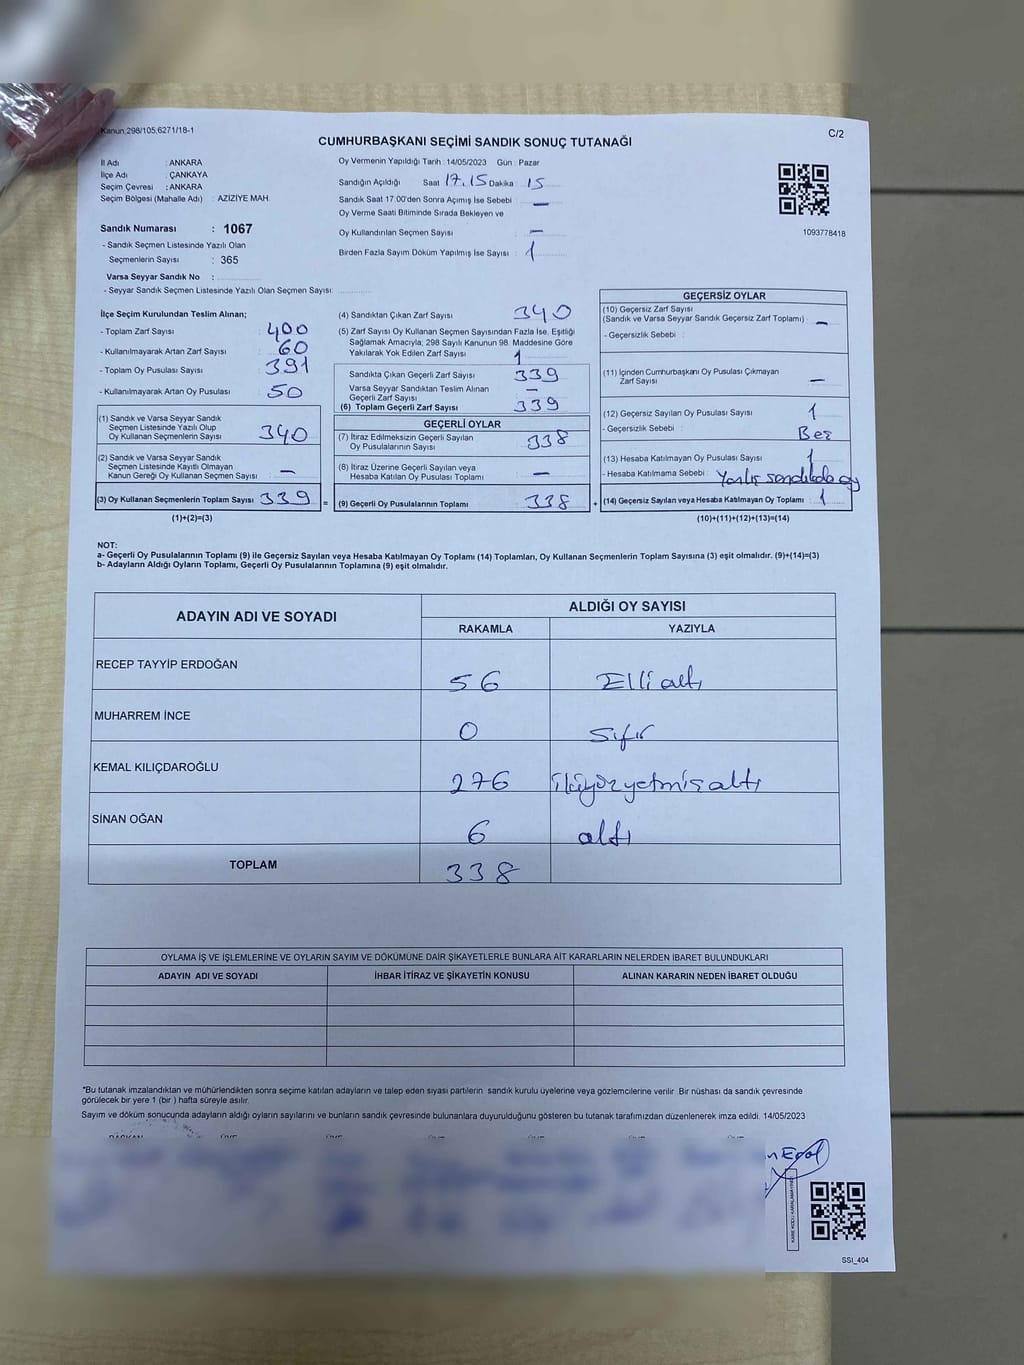 Kanun,298/105,6271/18-1
C/2
CUMHURBAŞKANI SEÇİMİ SANDIK SONUÇ TUTANAĞI
İl Adı : ANKARA
İlçe Adı : ÇANKAYA
Seçim Çevresi : ANKARA
Seçim Bölgesi (Mahalle Adı) : AZİZİYE MAH.
Sandık Numarası : 1067
- Sandık Seçmen Listesinde Yazılı Olan
Seçmenlerin Sayısı : 365
Varsa Seyyar Sandık No :
- Seyyar Sandık Seçmen Listesinde Yazılı Olan Seçmen Sayısı:
Oy Vermenin Yapıldığı Tarih : 14/05/2023 Gün : Pazar
Sandığın Açıldığı Saat 17.15 Dakika 15
Sandık Saat 17:00'den Sonra Açımış İse Sebebi : —
Oy Verme Saati Bitiminde Sırada Bekleyen ve
Oy Kullandırılan Seçmen Sayısı : —
Birden Fazla Sayım Döküm Yapılmış İse Sayısı : 1
1093778418
İlçe Seçim Kurulundan Teslim Alınan;
- Toplam Zarf Sayısı : 400
- Kullanılmayarak Artan Zarf Sayısı : 60
- Toplam Oy Pusulası Sayısı : 391
- Kullanılmayarak Artan Oy Pusulası : 50
(1) Sandık ve Varsa Seyyar Sandık
Seçmen Listesinde Yazılı Olup
Oy Kullanan Seçmenlerin Sayısı : 340
(2) Sandık ve Varsa Seyyar Sandık
Seçmen Listesinde Kayıtlı Olmayan
Kanun Gereği Oy Kullanan Seçmen Sayısı : —
(3) Oy Kullanan Seçmenlerin Toplam Sayısı : 339
(1)+(2)=(3)
(4) Sandıktan Çıkan Zarf Sayısı : 340
(5) Zarf Sayısı Oy Kullanan Seçmen Sayısından Fazla İse, Eşitliği
Sağlamak Amacıyla; 298 Sayılı Kanunun 98. Maddesine Göre
Yakılarak Yok Edilen Zarf Sayısı : 1
Sandıkta Çıkan Geçerli Zarf Sayısı : 339
Varsa Seyyar Sandıktan Teslim Alınan
Geçerli Zarf Sayısı : —
(6) Toplam Geçerli Zarf Sayısı : 339
GEÇERLİ OYLAR
(7) İtiraz Edilmeksizin Geçerli Sayılan
Oy Pusulalarının Sayısı : 338
(8) İtiraz Üzerine Geçerli Sayılan veya
Hesaba Katılan Oy Pusulası Toplamı : —
= (9) Geçerli Oy Pusulalarının Toplamı : 338 +
GEÇERSİZ OYLAR
(10) Geçersiz Zarf Sayısı
(Sandık ve Varsa Seyyar Sandık Geçersiz Zarf Toplamı) : —
- Geçersizlik Sebebi :
(11) İçinden Cumhurbaşkanı Oy Pusulası Çıkmayan
Zarf Sayısı : —
(12) Geçersiz Sayılan Oy Pusulası Sayısı : 1
- Geçersizlik Sebebi : Boş
(13) Hesaba Katılmayan Oy Pusulası Sayısı : 1
- Hesaba Katılmama Sebebi : Yanlış sandıkda oy
(14) Geçersiz Sayılan veya Hesaba Katılmayan Oy Toplamı : 1
(10)+(11)+(12)+(13)=(14)
NOT:
a- Geçerli Oy Pusulalarının Toplamı (9) ile Geçersiz Sayılan veya Hesaba Katılmayan Oy Toplamı (14) Toplamları, Oy Kullanan Seçmenlerin Toplam Sayısına (3) eşit olmalıdır. (9)+(14)=(3)
b- Adayların Aldığı Oyların Toplamı, Geçerli Oy Pusulalarının Toplamına (9) eşit olmalıdır.
ADAYIN ADI VE SOYADI
ALDIĞI OY SAYISI
RAKAMLA YAZIYLA
RECEP TAYYİP ERDOĞAN 56 Elli altı
MUHARREM İNCE 0 Sıfır
KEMAL KILIÇDAROĞLU 276 ikiyüzyetmişaltı
SİNAN OĞAN 6 altı
TOPLAM 338
OYLAMA İŞ VE İŞLEMLERİNE VE OYLARIN SAYIM VE DÖKÜMÜNE DAİR ŞİKAYETLERLE BUNLARA AİT KARARLARIN NELERDEN İBARET BULUNDUKLARI
ADAYIN ADI VE SOYADI İHBAR İTİRAZ VE ŞİKAYETİN KONUSU ALINAN KARARIN NEDEN İBARET OLDUĞU
*Bu tutanak imzalandıktan ve mühürlendikten sonra seçime katılan adayların ve talep eden siyasi partilerin sandık kurulu üyelerine veya gözlemcilerine verilir. Bir nüshası da sandık çevresinde
görülecek bir yere 1 (bir ) hafta süreyle asılır.
Sayım ve döküm sonucunda adayların aldığı oyların sayılarını ve bunların sandık çevresinde bulunanlara duyurulduğunu gösteren bu tutanak tarafımızdan düzenlenerek imza edildi. 14/05/2023
SSI_404